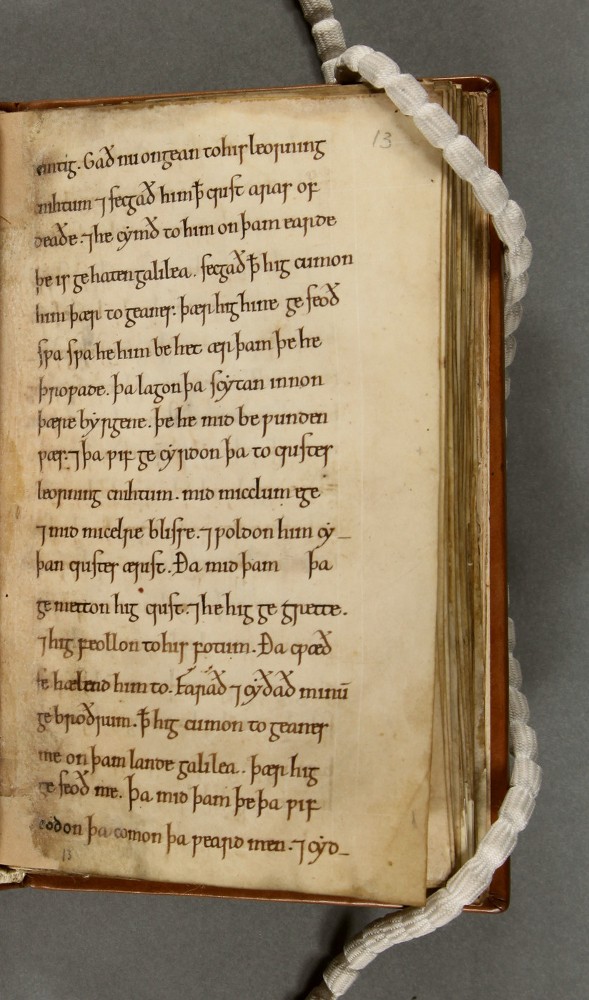 13
æmtig. Gað nu ongean to his leorning
cnihtum ⁊ secgað him ꝥ crist aras of
deaðe. ⁊ he cymð to him on þam earde
þe is gehaten galilea. secgað ꝥ hig cumon
him þær togeanes. þær hig hine geseoð
swa swa he him behet ær þam þe he
þrowade. þa lagon þa scytan innon
þære byrgene. þe he mid bewunden
wæs. ⁊ þa wif gecyrdon þa to cristes
leorning cnihtum. mid micclum ege
⁊ mid micelre blisse. ⁊ woldon him cy-
þan cristes ærist. Ða mid þam þa
gemetton hig crist. ⁊ he hig gegrette.
⁊ hig feollon to his fotum. Ða cwæð
se hælend him to. Farað ⁊ cyðað minū
gebroðrum. ꝥ hig cumon togeanes
me on þam lande galilea. þær hig
geseoð me. þa mid þam þe þa wif
eodon þa comon þa weard men. ⁊ cyd-
13